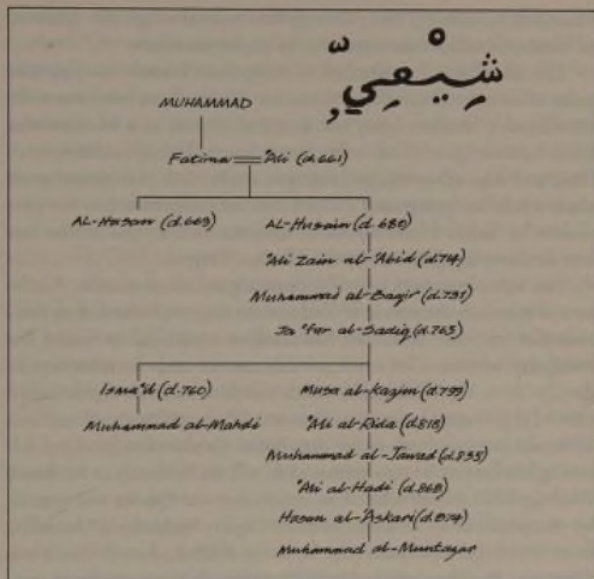 شِيْعِيّ
MUHAMMAD
Fatima ʿAli (d.661)
AL-Hasan (d.669) AL-Husain (d.680)
ʿAli Zain al-ʿAbid (d.714)
Muhammad al-Baqir (d.731)
Jaʿfar al-Sadiq (d.765)
Ismaʿil (d.760) Musa al-Kazim (d.799)
Muhammad al-Mahdi ʿAli al-Rida (d.818)
Muhammad al-Jawad (d.835)
ʿAli al-Hadi (d.868)
Hasan al-ʿAskari (d.874)
Muhammad al-Muntazar